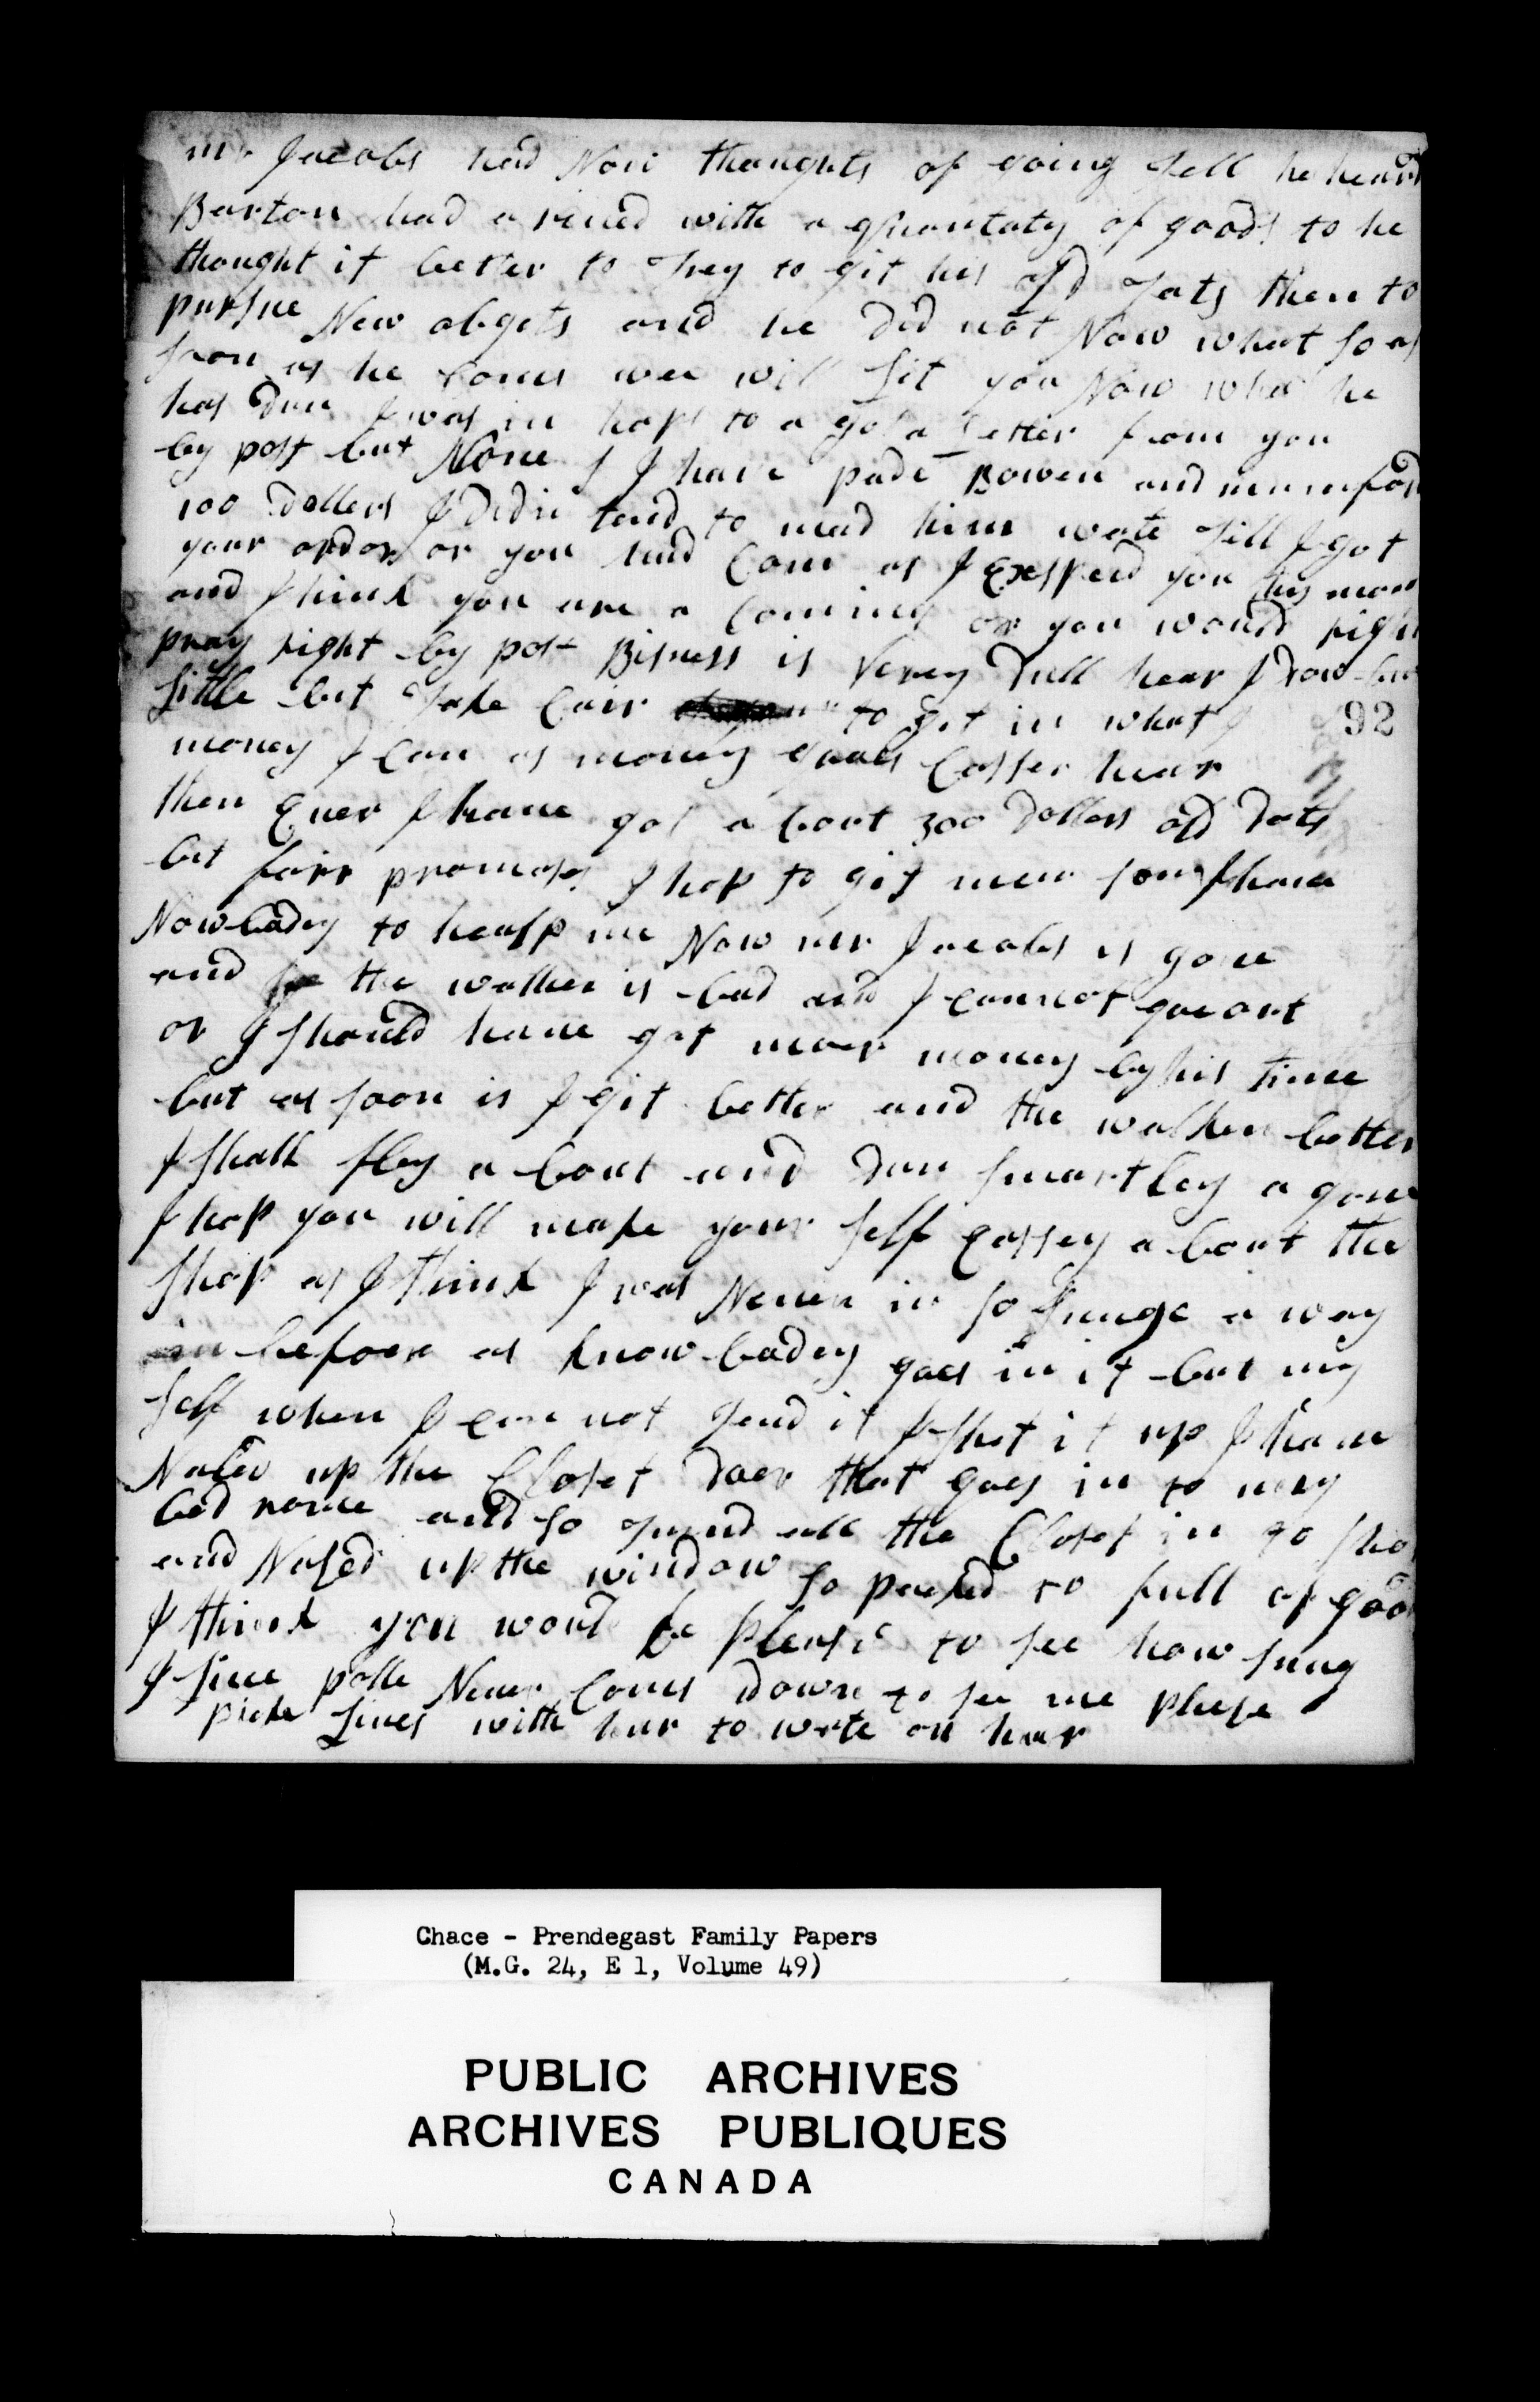 mr Jacobs had Now thoughts of going tell he heard
Barton had a rived with a quantaty of goods to he
thought it better to trey to git his old dats then to
pursue New obgets and he did not Now what so as
soon as he Comes wee will lit you Now what he
has dun I was in hops to a got a Letter from you
by post but None I have pade Bowen and mumford
100 Dollers I Didn tend to mad him wate till I got
your order or you had Com as I Exspead you this mon
and I think you are a Coming or you would right
pray right by post Bisness is verey dull hear I dow but
little but take Cair to get in what
92
money I Can as money goods Casser hear
then Ever I have got a bout 300 Dollers old Dats
but fair promases I hop to git mour soon I have
Nowbadey to healp me Now mr Jacobs is gone
and the wather is bad and I cannot goe out
or I should have got moer money by his time
but as soon is I git better and the wather better
I shall fley a bout and dun smartley a gane
I hop you will make your self Eassey a bout the
shop as I think I was Never in so snuge a way
in befoer as knowbadey goes in it but my
self when I can not tend it I shet it up I have
Naled up the Closet doer that goes in to mey
bed rome and so turnd all the Closet in to shop
and Naled up the window so packed so full of good
I think you would be pleased to see how snug
I live polle Never Comes down to see me plese
picke lines with hur to wate on hur
Chace - Prendegast Family Papers
(M.G. 24, E 1, Volume 49)
PUBLIC ARCHIVES
ARCHIVES PUBLIQUES
CANADA